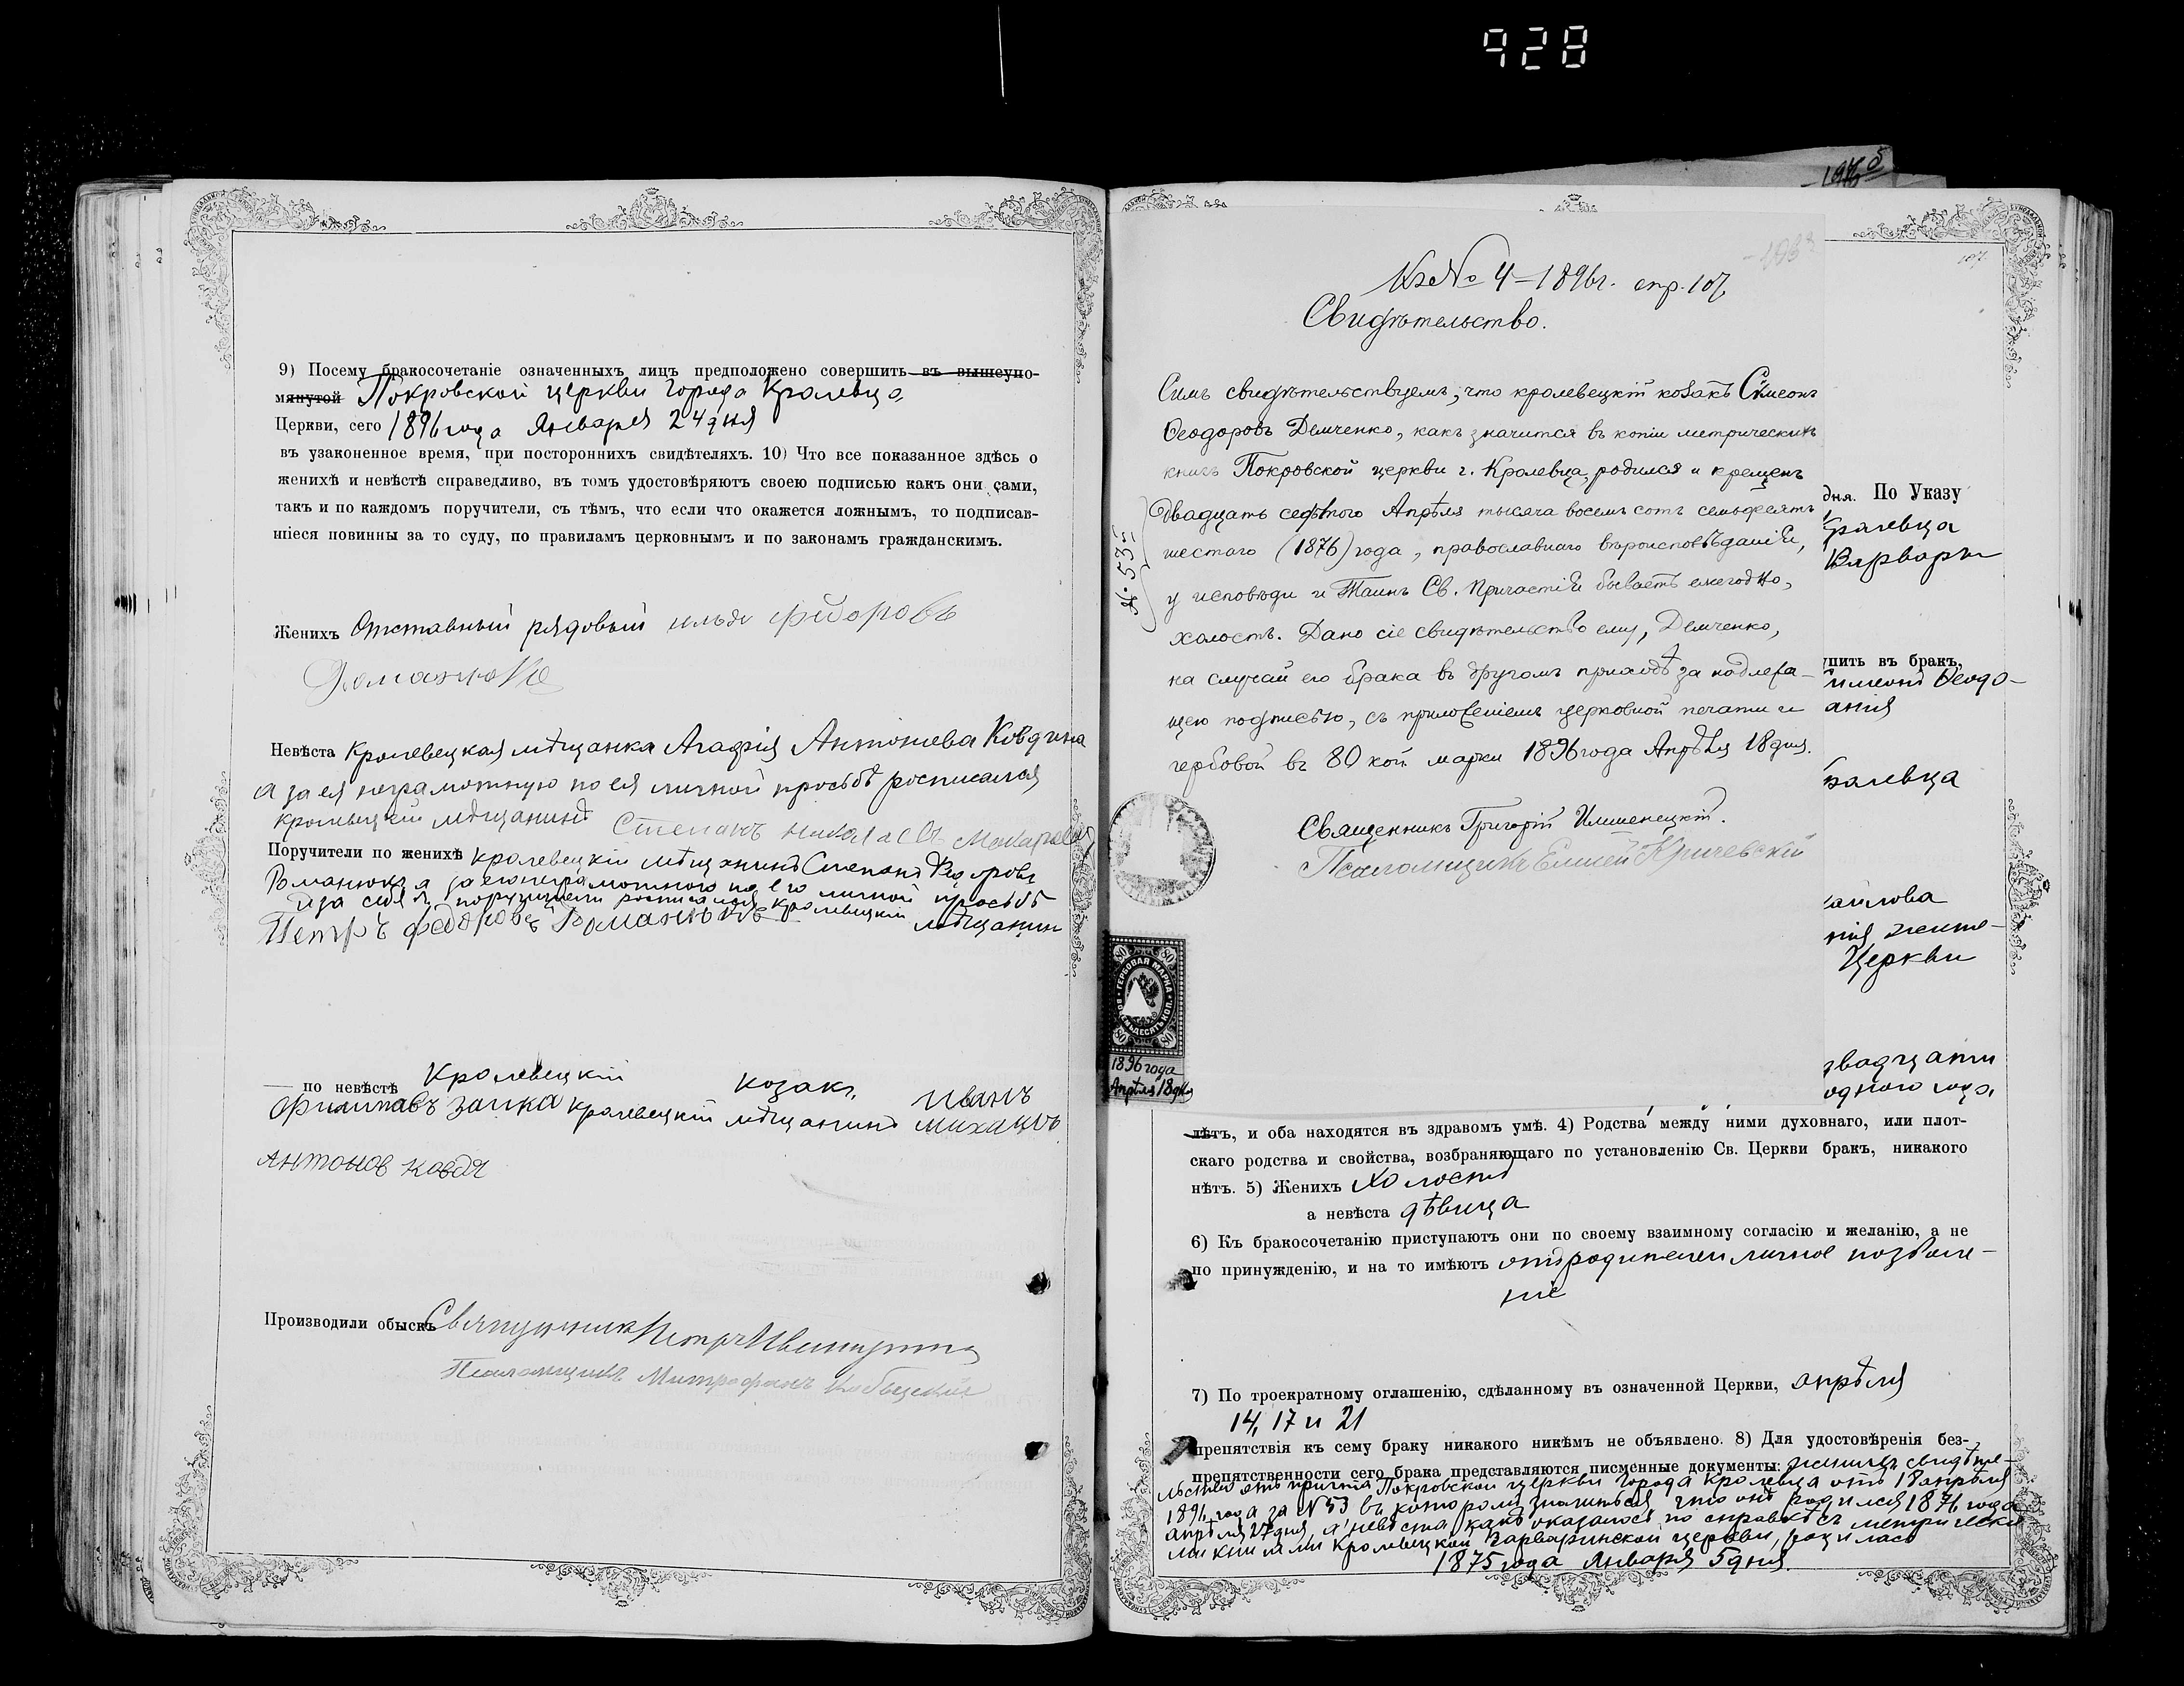 928
9) Посему бракосочетаніе означенныхъ лицъ предположено совершить въ вышеупо-
мянутой Покровской церкви города Кролевца
Церкви, сего 1896 года Января 24 дня
въ узаконенное время, при постороннихъ свидѣтеляхъ. 10) Что все показанное здѣсь о
женихѣ и невѣстѣ справедливо, въ томъ удостовѣряютъ своею подписью какъ они сами,
такъ и по каждомъ поручители, съ тѣмъ, что если что окажется ложнымъ, то подписав-
шіеся повинны за то суду, по правиламъ церковнымъ и по законамъ гражданскимъ.
Женихъ Отставный рядовый илья фѣдоровъ
Романюкъ
Невѣста Кролевецкая мѣщанка Агафія Антонова Ковдина
а за ея неграмотную по ея личной просьбѣ росписался
кролевецкій мѣщанинъ Степанъ
Поручители по женихѣ кролевецкій мѣщанинъ Степанъ Федоровъ
Романюкъ а за его неграмотного по его личной просьбѣ
и за себя поручителя росписался кролевецкій мѣщанин
Петръ федоровъ Романюкъ
по невѣстѣ Кролевецкій козакъ Иванъ
Филиповъ Заика кролевецкій мѣщанинъ Михаилъ
Антонов Ковдя
Производили обыскъ Священникъ Петръ
Псаломщикъ Митрофанъ
1076
107
Къ № 4-1896 г. стр. 107
Свидѣтельство.
Симъ свидѣтельствуемъ, что кролевецкій козакъ Симеонъ
Ѳеодоровъ Демченко, какъ значится въ копіи метрическихъ
книгъ Покровской церкви г. Кролевца, родился и крещенъ
двадцать седьмого Апрѣля тысяча восемь сотъ семьдесятъ
шестого (1876) года, православнаго вѣроисповѣданія,
у исповѣди и Таинъ Св. Причастія бываетъ ежегодно,
холостъ. Дано сіе свидѣтельство ему, Демченко,
на случай его брака въ другомъ приходѣ за надлежа-
щею подписью, съ приложеніемъ церковной печати и
гербовой въ 80 коп марки 1896 года Апрѣля 18 дня.
№ 53
Священникъ Григорій Имшенецкій.
Псаломщикъ Елисей Кричевскій
ГЕРБОВАЯ МАРКА
ВОСЕМЬДЕСЯТЪ КОП.
80 80 80 80
1896 года
Апрѣля 18 дня
дня. По Указу
Кролевца
Варвары
упить въ бракъ,
имеонъ Ѳеодо-
анія
ролевца
хайлова
нія жите-
Церкви
двадцати
одного года,
лѣтъ, и оба находятся въ здравомъ умѣ. 4) Родства между ними духовнаго, или плот-
скаго родства и свойства, возбраняющаго по установленію Св. Церкви бракъ, никакого
нѣтъ. 5) Женихъ Холостъ
а невѣста дѣвица
6) Къ бракосочетанію приступаютъ они по своему взаимному согласію и желанію, а не
по принужденію, и на то имѣютъ отъ родителей личное позволе-
ніе
7) По троекратному оглашенію, сдѣланному въ означенной Церкви, апрѣля
14, 17 и 21
препятствія къ сему браку никакого никѣмъ не объявлено. 8) Для удостовѣренія без-
препятственности сего брака представляются писменные документы: женихъ свидѣте-
льство отъ причта Покровской церкви города Кролевца отъ 18 апрѣля
1896 года за № 53 въ которомъ значиться, что онъ родился 1876 года
апрѣля 27 дня, а невѣста, какъ оказалось по справкѣ съ метрически-
ми книгами Кролевецкой Варваринской церкви, родилась
1875 года Января 5 дня.